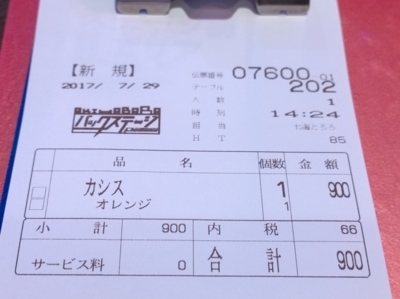 【新 規】 伝票番号 07600-01
2017/ 7/29 テーブル 202
人数 1
時刻 14:24
バックステージ 担当
HT 85
品 名 個数 金額
カシス 1 900
オレンジ 1
小計 900 内税 66
サービス料 0 合計 900